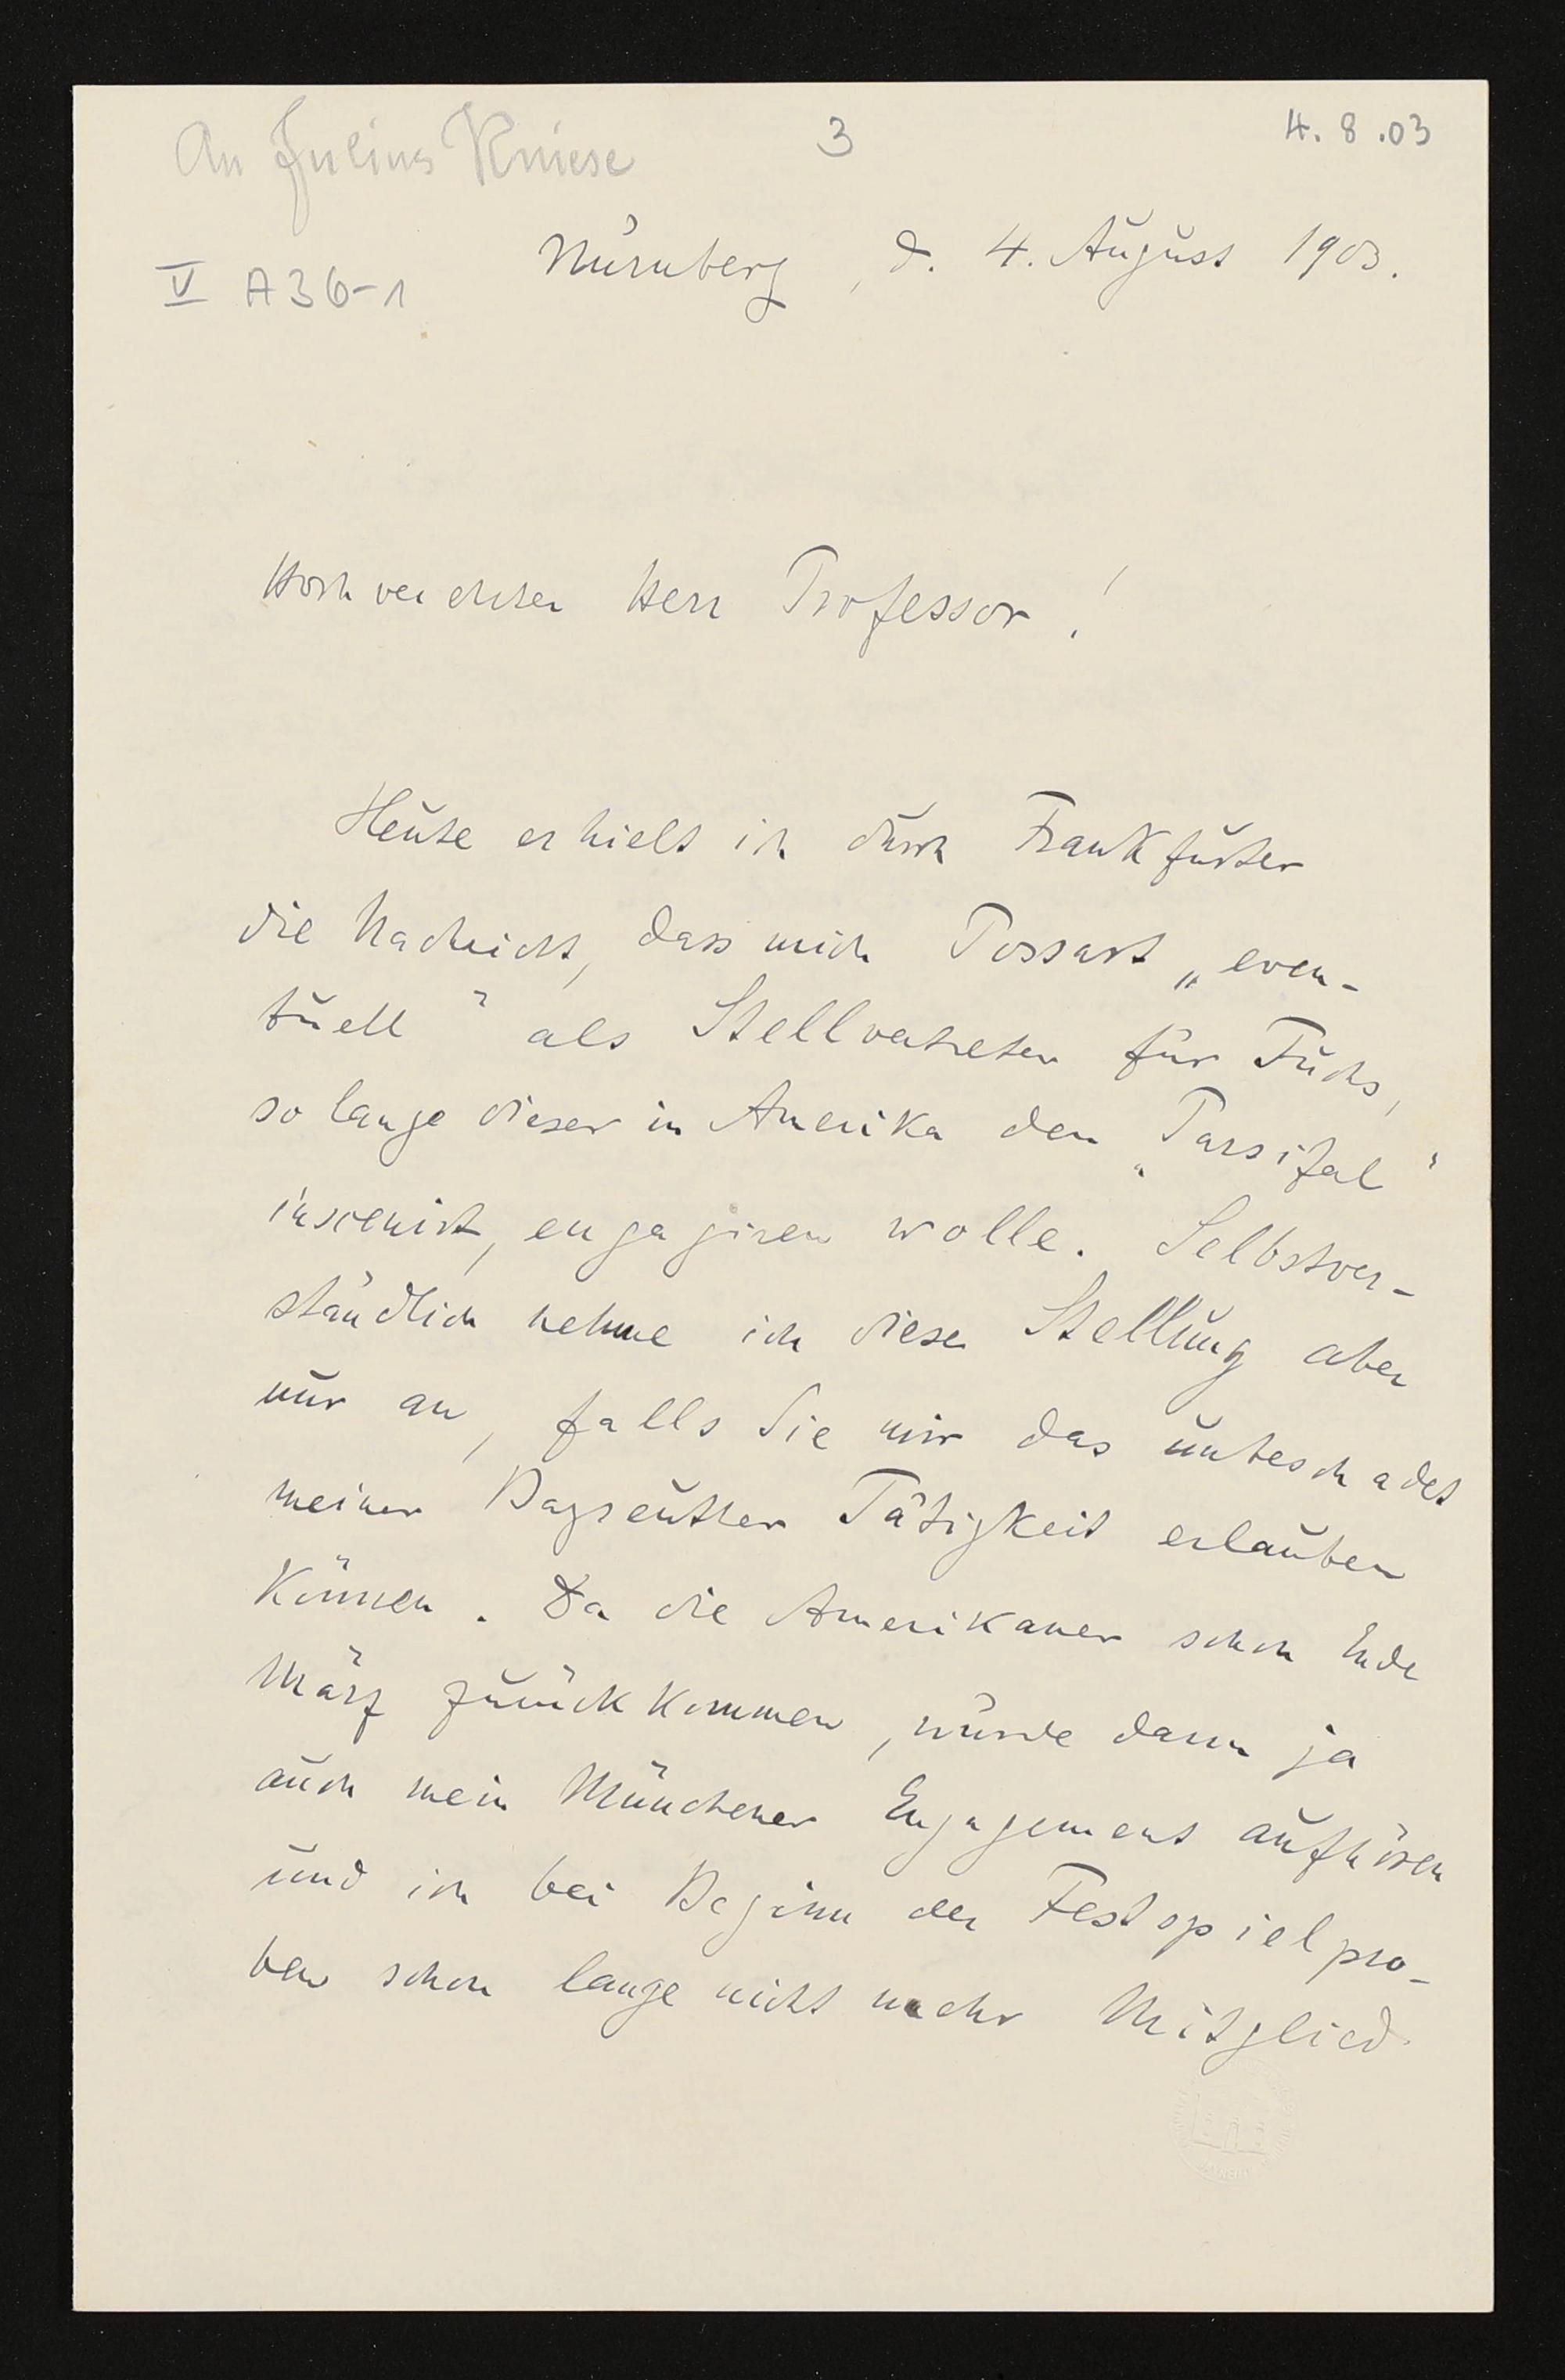 An Julius Kniese
3
4. 8. 03
Nürnberg, d. 4. August 1903.
V A36-1
Hochverehrter Herr Professor!
Heute erhielt ich durch Frankfurter
die Nachricht, dass mich Possart „even-
tuell" als Stellvertreter für Fuchs,
so lange dieser in Amerika den „Parsifal"
inscenirt, engagiren wolle. Selbstver-
ständlich nehme ich diese Stellung aber
nur an, falls Sie mir das unbeschadet
meiner Bayreuther Tätigkeit erlauben
können. Da die Amerikaner schon Ende
März zurückkommen, würde dann ja
auch mein Münchener Engagement aufhören
und ich bei Beginn der Festspielpro-
ben schon lange nicht mehr Mitglied